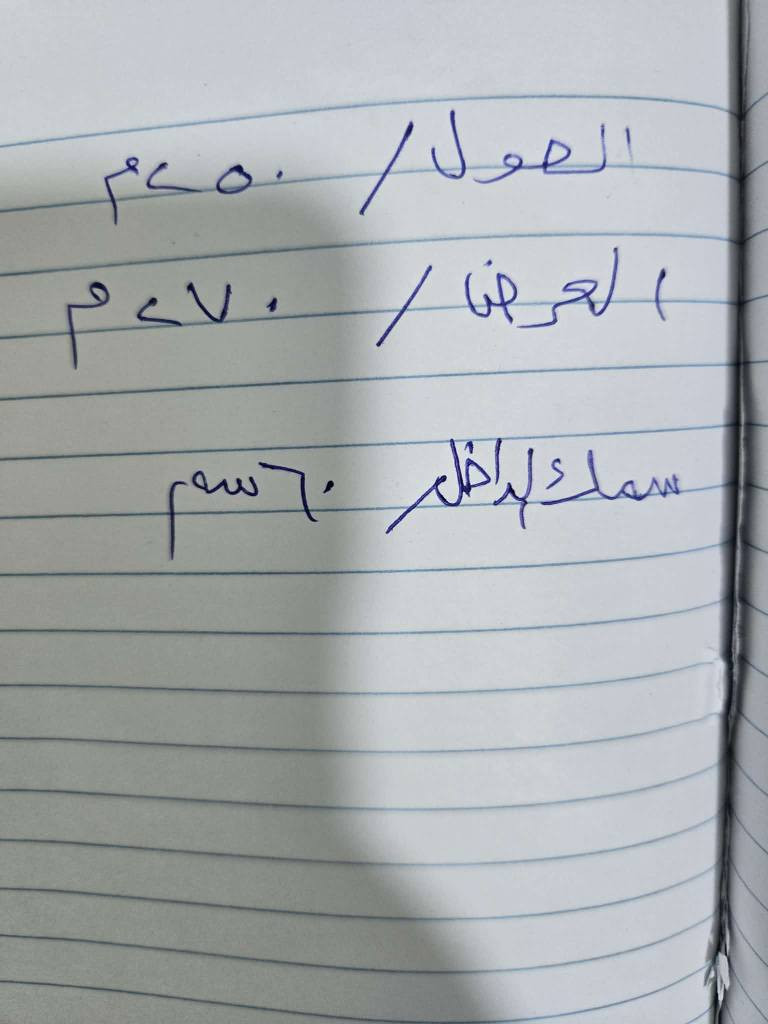 الصول / ٥٠
العرض / ٧٠
سمك الداخل / ٦٠ سم